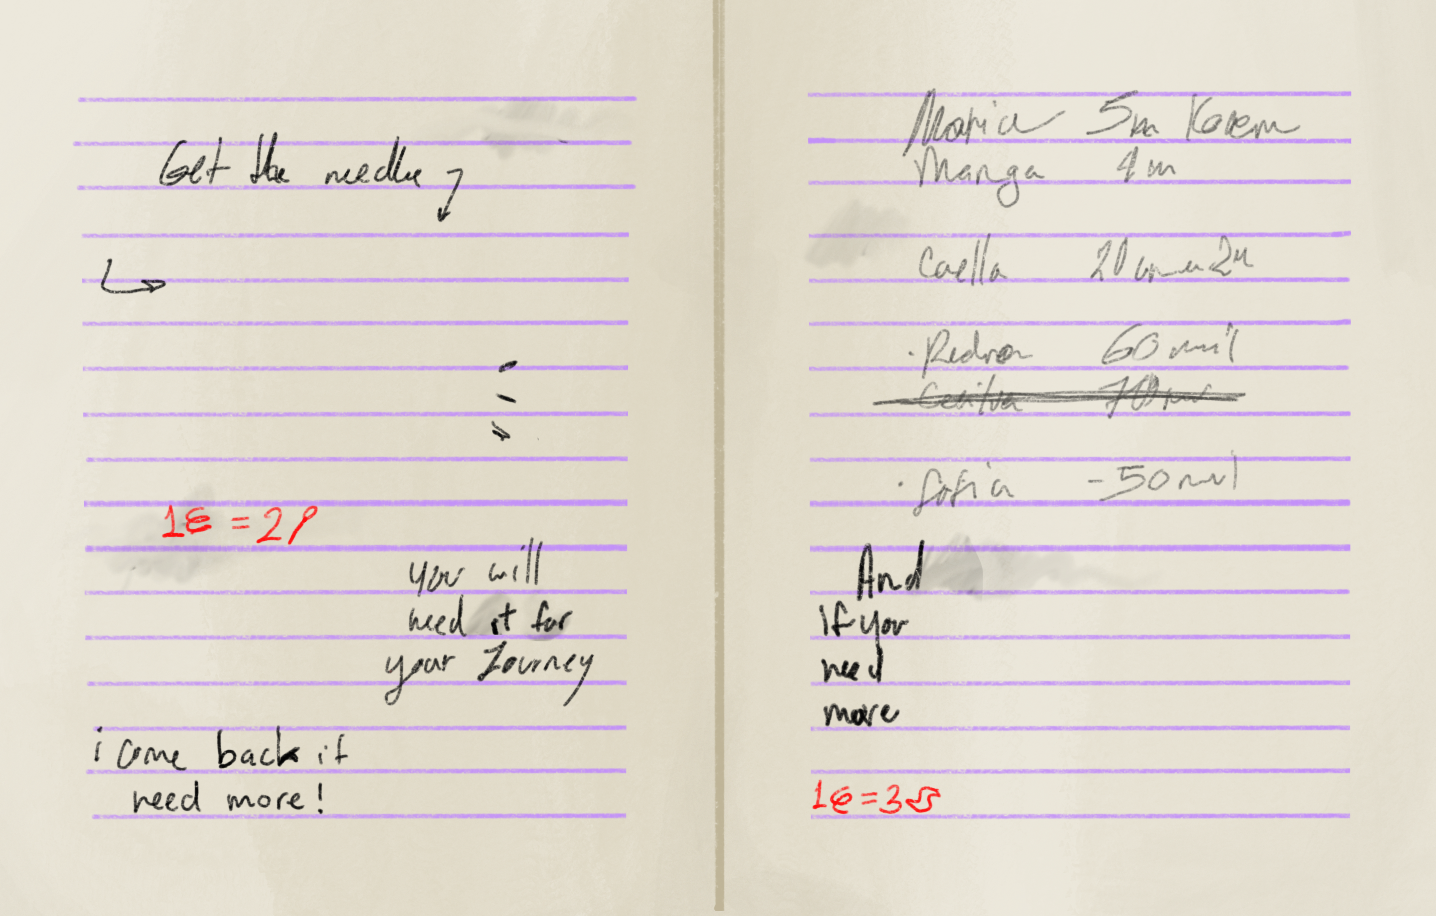 Get the needle
1€ = 2P
you will
need it for
your Journey
i come back if
need more!
Maria 5m
Manga 1m
Caella
Pedro 60 mil
Sofia -50 mil
And
if you
need
more
1€=3